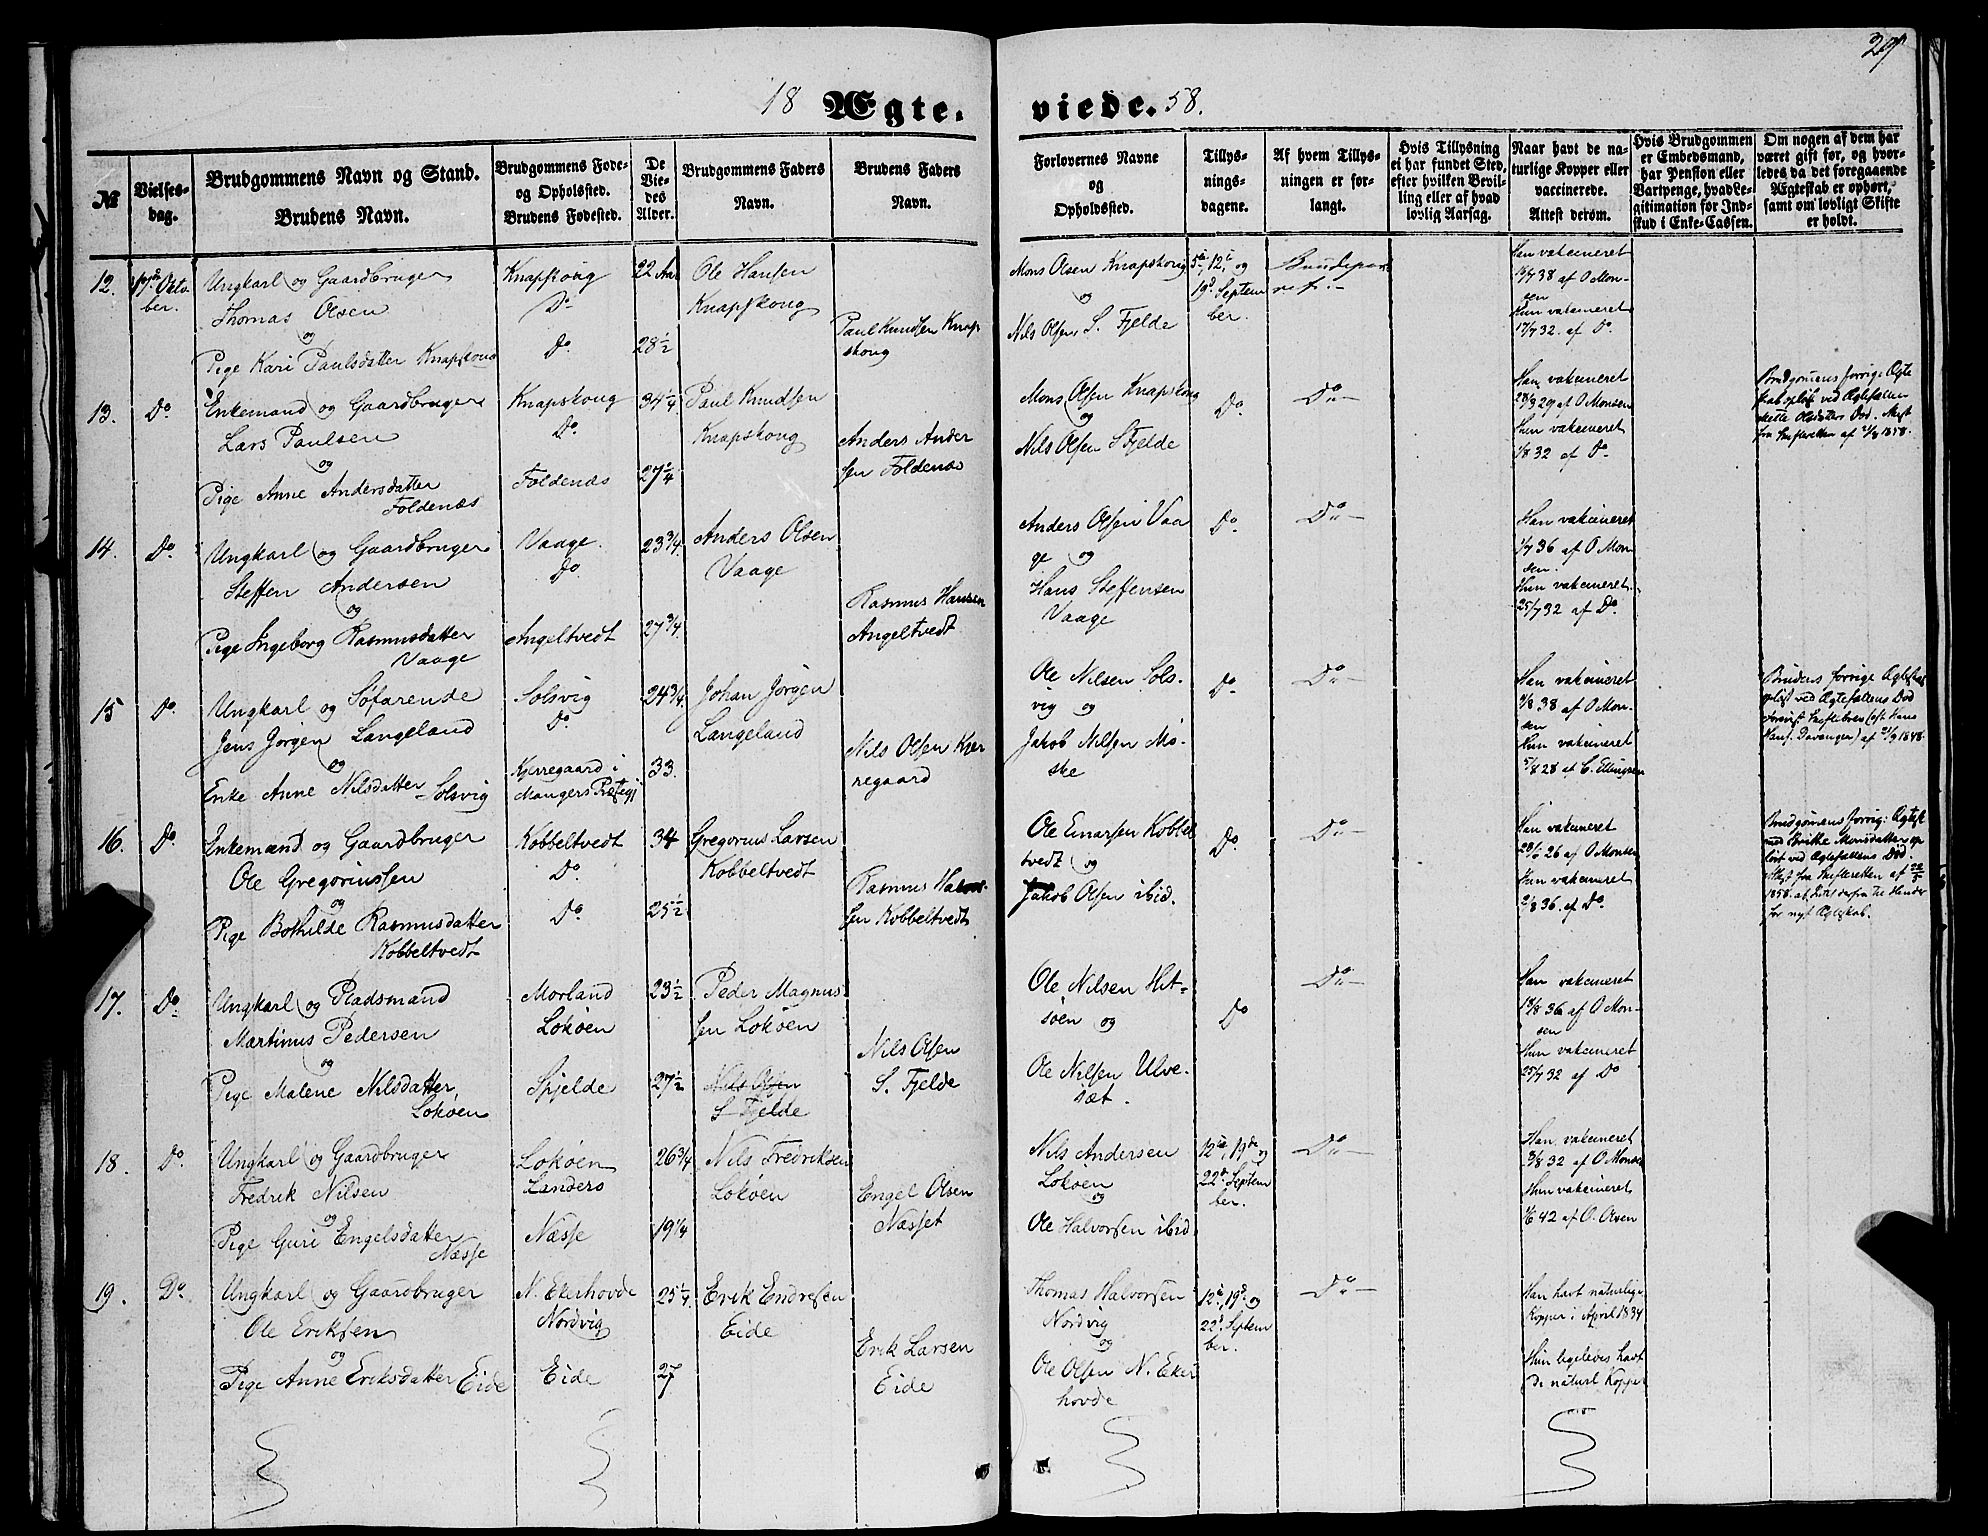 29
18 Ægte.
viede. 58.
№
Vielses-
dag.
Brudgommens Navn og Stand.
Brudens Navn.
Brudgommens Føde-
og Opholdsted.
Brudens Fødested.
De
Vie-
des
Alder.
Brudgommens Faders
Navn.
Brudens Faders
Navn.
Forlovernes Navne
og
Opholdssted.
Tillys-
nings-
dagene.
Af hvem Tillys-
ningen er for-
langt.
Hvis Tillysning
ei har fundet Sted,
efter hvilken Bevil-
ling eller af hvad
lovlig Aarsag.
Naar havt de na-
turlige Kopper eller
vaccinerede.
Attest derom.
Hvis Brudgommen
er Embedsmand,
har Pension eller
Vartpenge, hvad Le-
gitimation for Ind-
skud i Enke-Cassen.
Om nogen af dem har
været gift før, og hvor-
ledes da det foregaaende
Ægteskab er ophørt,
samt om lovligt Skifte
er holdt.
12.
Octo-
ber.
Ungkarl og Gaardbruger
Thomas Olsen
og
Pige Kari Paulsdatter Knapskoug
Knapskoug
Do
Do
22 Aar
28½
Ole Hansen
Knapskoug
Paul Knudsen Knap
skoug
Mons Olsen Knapskoug
og
Nils Olsen S. Fjelde
5te, 12te og
19de Septem
ber.
Brudepar-
ret
Han vakcineret
38 af O Mon-
sen
Hun vakcineret
17/7 32. af Do
13.
Do
Enkemand og Gaardbruger
Lars Paulsen
og
Pige Anne Andersdatter
Foldenæs
Knapskoug
Do
Foldenæs
34¼
27¼
Paul Knudsen
Knapskoug
Anders Ander
sen Foldenæs
Mons Olsen Knapskoug
og
Nils Olsen S Fjelde
Do
Do
Han vakcineret
29 af O Monsen
Hun vakcineret
1/8 32 af Do
14.
Do
Ungkarl og Gaardbruger
Steffen Andersen
og
Pige Ingeborg Rasmusdatter
Vaage
Vaage
Do
Angeltvedt
23¾
27¾
Anders Olsen
Vaage
Rasmus Hansen
Angeltvedt
Anders Olsen Vaa
ge og
Hans Steffensen
Vaage
Do
Do
Han vakcineret
1/7 36 af O Mon-
sen.
Hun vakcineret
25/7 32 af Do
15
Do
Ungkarl og Søfarende
Jens Jørgen Langeland
og
Enke Anne Nilsdatter Solsvig
Solsvig
Do
Kjerregaard i
Mangers Præstegj
24¾
33.
Johan Jørgen
Langeland
Nils Olsen Kjer
regaard
Ole Nilsen Sols-
vig og
Jakob Nilsen Mo-
ske
Do
Do
Han vakcineret
38 af O Mon-
sen
Hun vakcineret
5/8 28 af C. Ellingsen
16.
Do
Enkemand og Gaardbruger
Ole Gregoriussen
og
Pige Bothilde Rasmusdatter
Kobbeltvedt
Kobbeltvedt
Do
Do
34
25½
Gregorius Larsen
Kobbeltvedt
Rasmus
sen Kobbeltvedt
Ole Einarsen Kobbel
tvedt og
Jakob Olsen ibid.
Do
Do
Han vakcineret
26 af O Monsen
Hun vakcineret
2/8 36 af Do
17.
Do
Ungkarl og Pladsmand
Martinus Pedersen
og
Pige Malene Nilsdatter
Lokøen
Morland
Lokøen
Spjelde
23½
27½
Peder Magnus-
sen Lokøen
Nils Olsen
S Fjelde
Nils Olsen
S. Fjelde
Ole Nilsen Hit-
søen og
Ole Nilsen Ulve-
sæt.
Do
Do
Han vakcineret
36 af O Mon-
sen
Hun vakcineret
25/7 32 af Do
18.
Do
Ungkarl og Gaardbruger
Fredrik Nilsen
og
Pige Guri Engelsdatter
Næsse
Lokøen
Landero
Næsse
26¾
19¼
Nils Fredriksen
Lokøen
Engel Olsen
Næsset
Nils Andersen
Lokøen
og
Ole Halvorsen ibid.
12te, 19de og
22de Septem
ber.
Do
Han vakcineret
32 af O Monsen
Hun vakcineret
42 af O. Olsen
19.
Do
Ungkarl og Gaardbruger
Ole Eriksen
og
Pige Anne Eriksdatter Eide
N. Ekerhovde
Nordvig
Eide
25¼
27
Erik Endresen
Eide
Erik Larsen
Eide
Thomas Halvorsen
Nordvig
og
Ole Olsen N. Eker
hovde
12te, 19de og
22de Septem
ber.
Do
Han havt naturlige
Kopper i April 1834
Hun ligeledes havt
de naturl Kopper